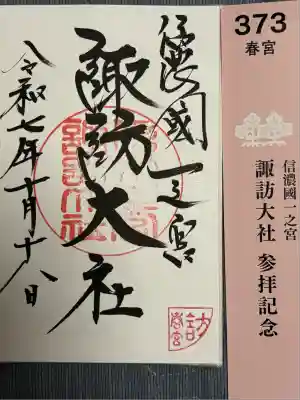 信濃國一之宮
諏訪大社
令和七年十月十八日
諏訪大社
春宮
373
春宮
信濃國一之宮
諏訪大社 参拝記念